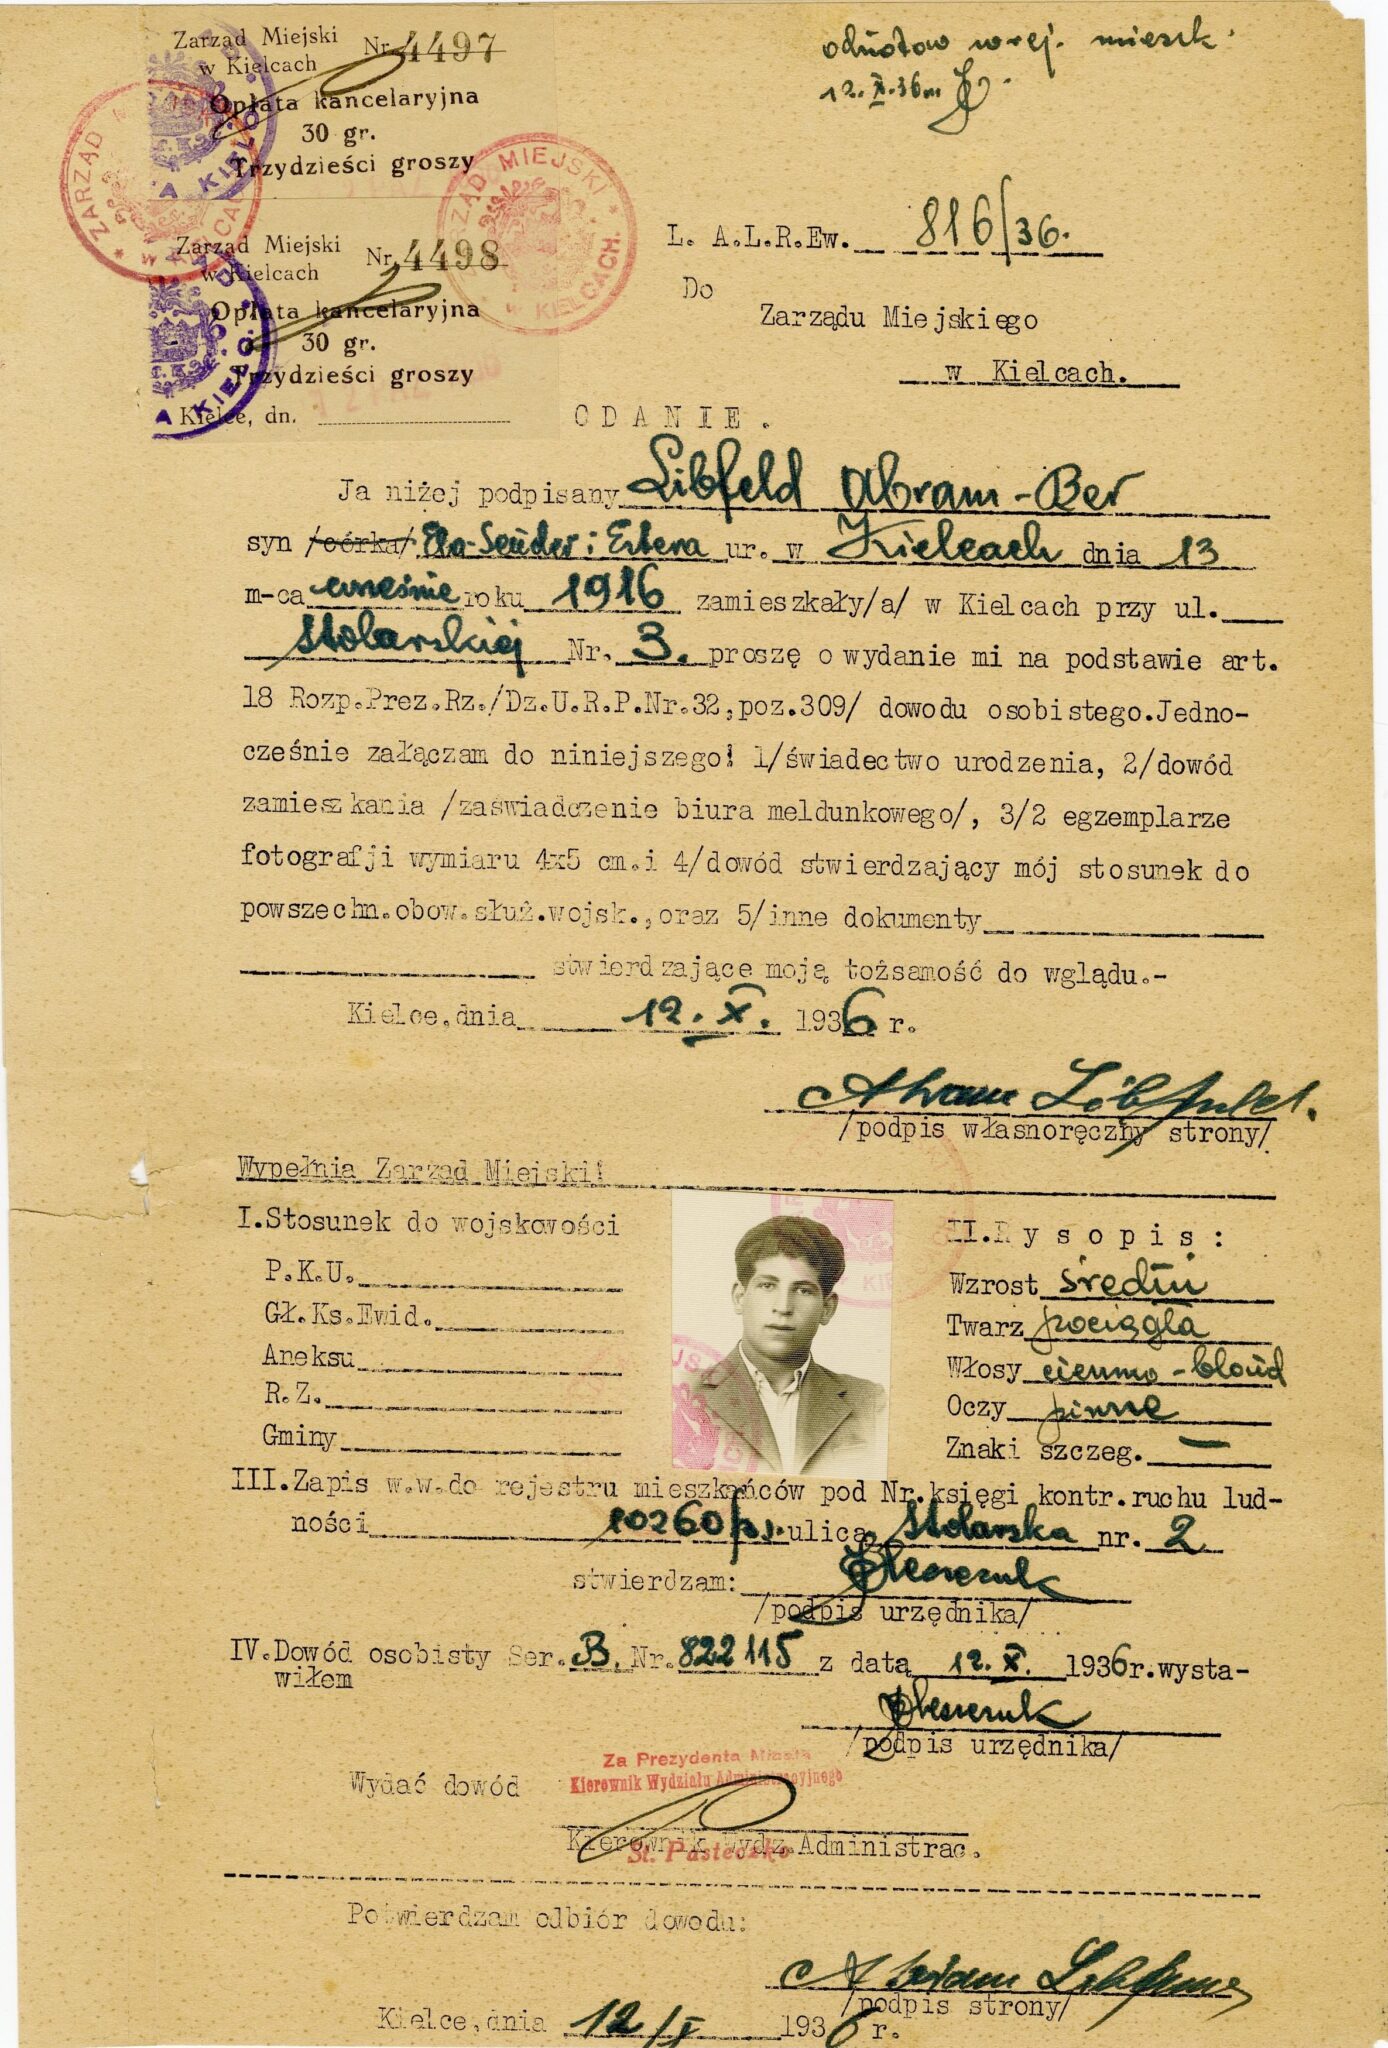 Zarząd Miejski
w Kielcach
Nr. 4497
Opłata kancelaryjna
30 gr.
Trzydzieści groszy
odnotow w rej. mieszk.
12.X.36
ZARZĄD MIEJSKI * W KIELCACH. *
Zarząd Miejski
w Kielcach
Nr. 4498
Opłata kancelaryjna
30 gr.
Trzydzieści groszy
Kielce, dn.
L. A.L.R.Ew. 816/36.
Do
Zarządu Miejskiego
w Kielcach.
ODANIE.
Ja niżej podpisany Libfeld Abram-Ber
syn /córka/ i Estera ur. w Kielcach dnia 13
m-ca wrześnie roku 1916 zamieszkały/a/ w Kielcach przy ul.
Stolarskiej Nr. 3. proszę o wydanie mi na podstawie art.
18 Rozp.Prez.Rz./Dz.U.R.P.Nr.32,poz.309/ dowodu osobistego.Jedno-
cześnie załączam do niniejszego: 1/świadectwo urodzenia, 2/dowód
zamieszkania /zaświadczenie biura meldunkowego/, 3/2 egzemplarze
fotografji wymiaru 4x5 cm.i 4/dowód stwierdzający mój stosunek do
powszechn.obow.służ.wojsk.,oraz 5/inne dokumenty
stwierdzające moją tożsamość do wglądu.-
Kielce,dnia 12.X. 1936 r.
Abram Libfeld.
/podpis własnoręczny strony/
Wypełnia Zarząd Miejski:
I.Stosunek do wojskowości
P.K.U.
Gł.Ks.Ewid.
Aneksu
R.Z.
Gminy
II.Rysopis:
Wzrost średni
Twarz pociągła
Włosy ciemno-blond
Oczy piwne
Znaki szczeg. —
III.Zapis w.w.do rejestru mieszkańców pod Nr.księgi kontr.ruchu lud-
ności 10260/31. ulica Stolarska nr. 2
stwierdzam:
/podpis urzędnika/
IV.Dowód osobisty Ser. B. Nr. 822115 z datą 12.X. 1936r.wysta-
wiłem
/podpis urzędnika/
Za Prezydenta Miasta
Kierownik Wydziału Administracyjnego
Wydać dowód
Kierownik Wydz.Administrac.
St. Pasteczko
Potwierdzam odbiór dowodu:
Abram Libfeld
/podpis strony/
Kielce,dnia 12/X 1936 r.